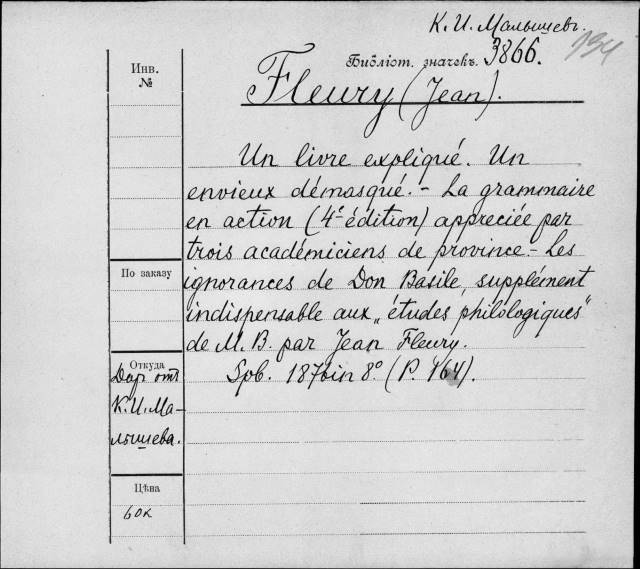 К. И. Малышевъ.
Библіот. значекъ. 3866. 134
Инв.
№
Fleury (Jean).
Un livre expliqué. Un
envieux démasqué. – La grammaire
en action (4e édition) appreciée par
trois académiciens de province. – Les
ignorances de Don Basile, supplément
indispensable aux „études philologiques“
de M. B. par Jean Fleury.
Spb. in 8° (P. 164).
По заказу
Откуда
Даръ отъ
К. И. Ма-
лышева.
Цѣна
60к